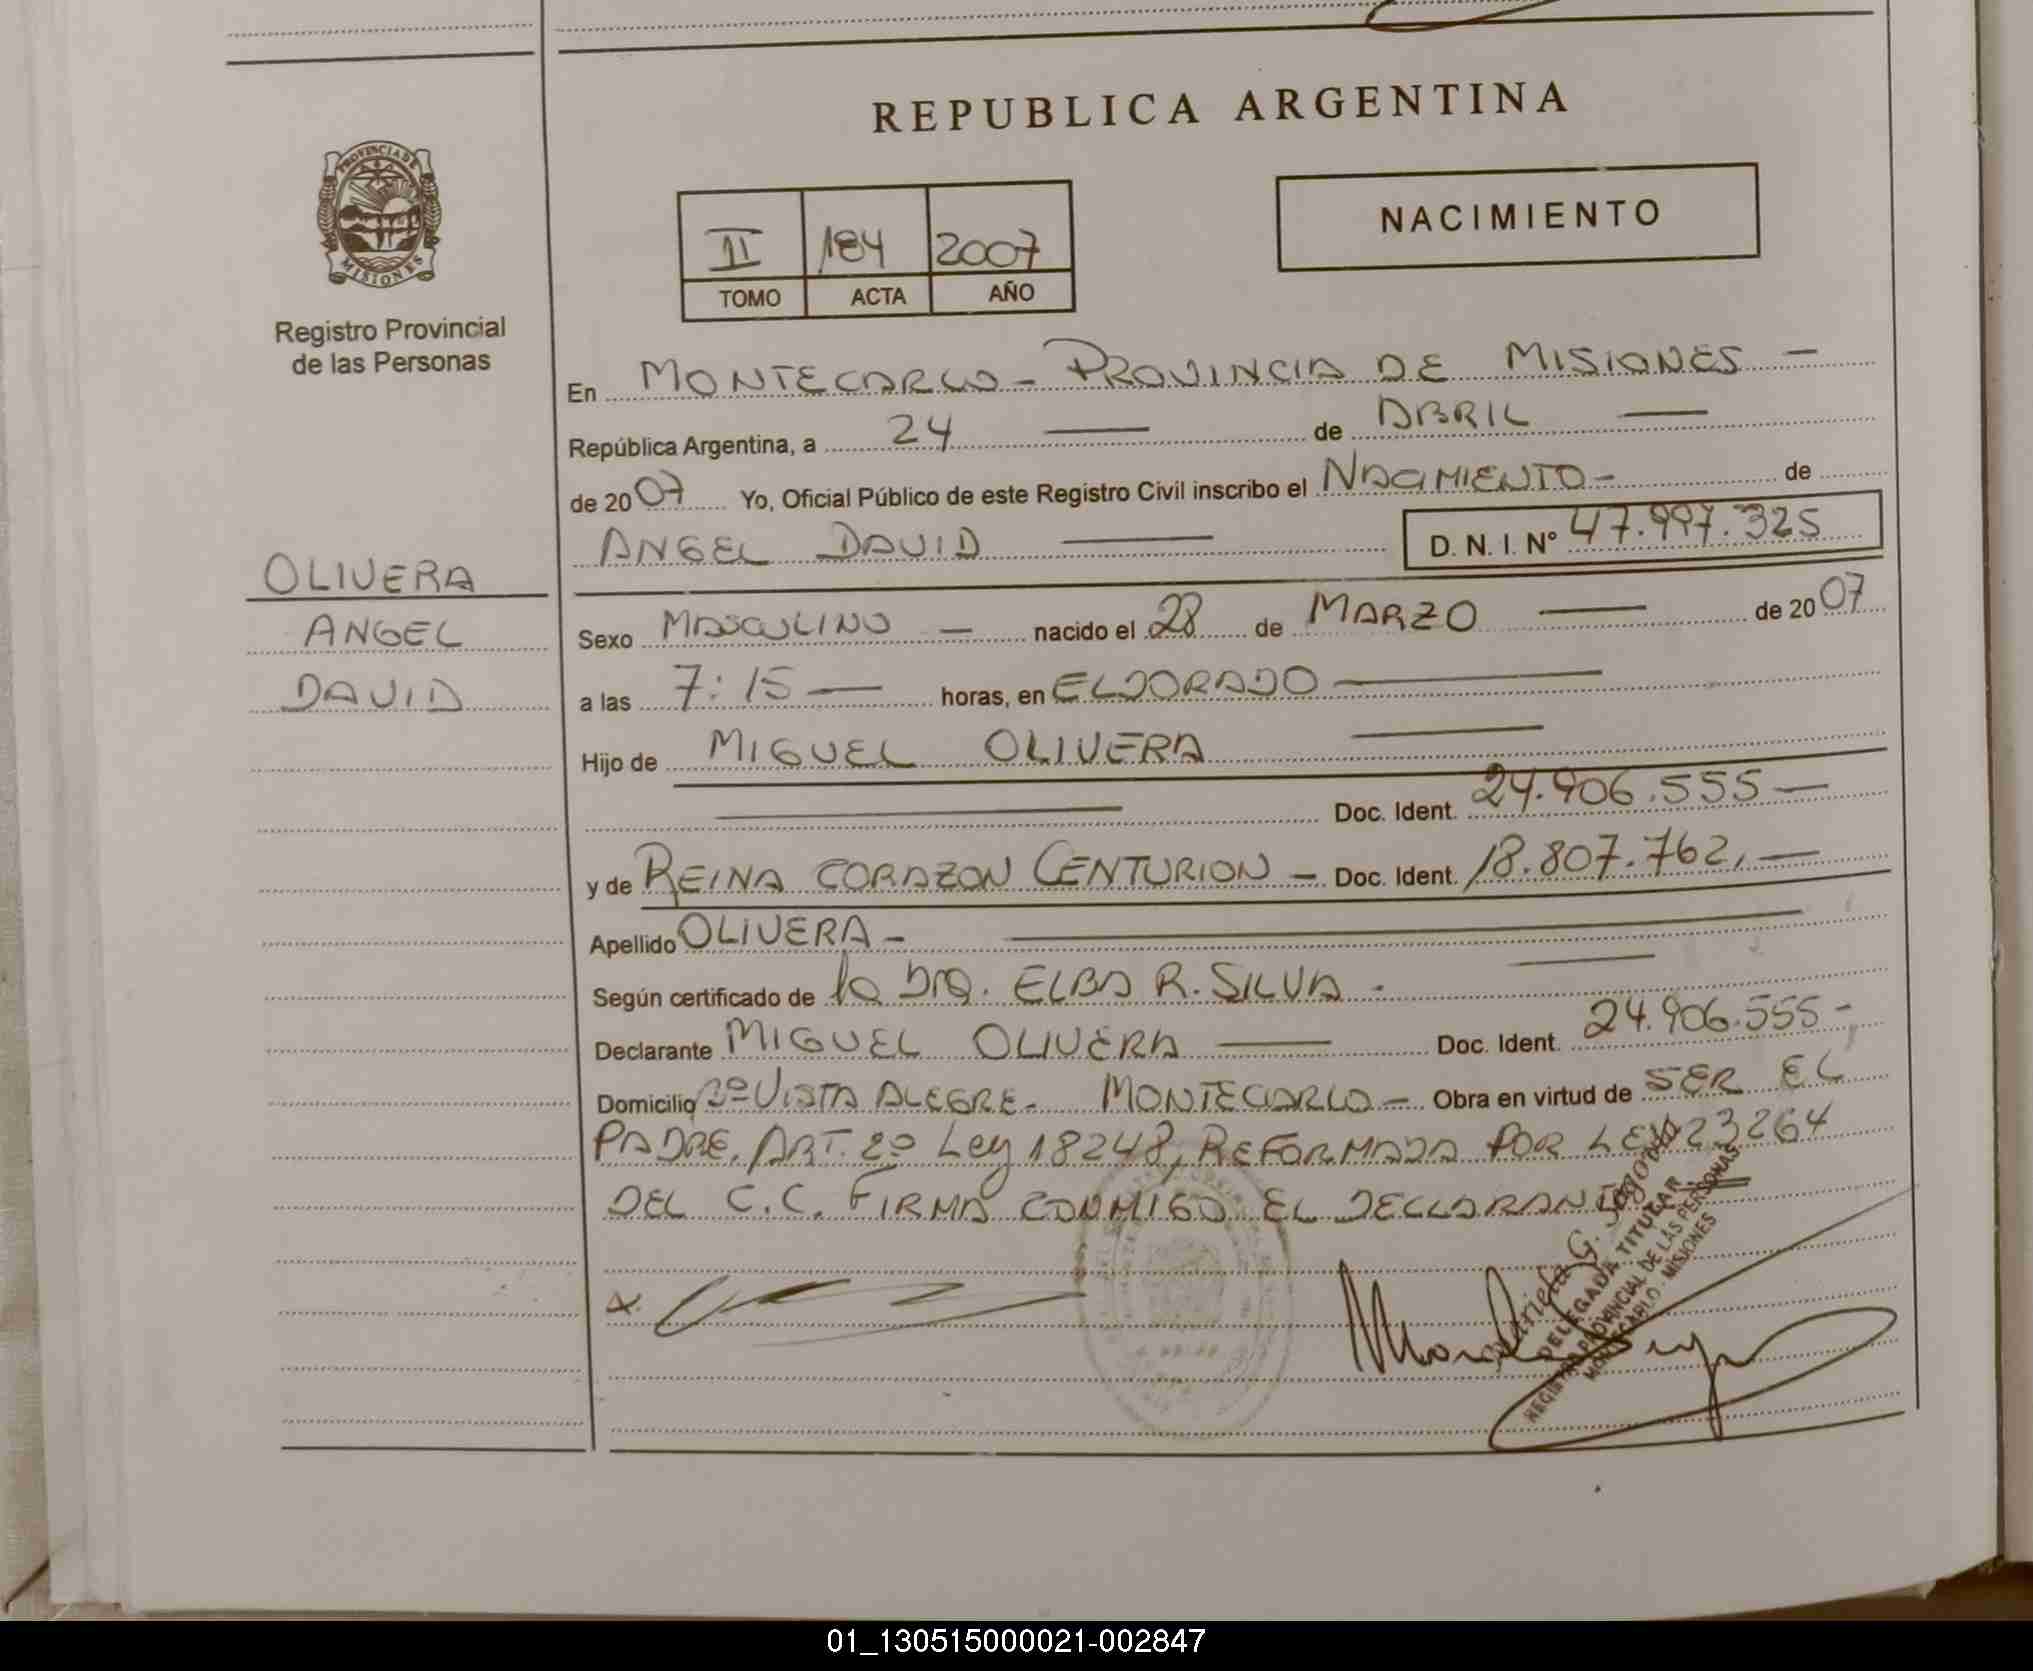 REPUBLICA ARGENTINA
PROVINCIA DE
MISIONES
Registro Provincial
de las Personas
II 184 2007
TOMO ACTA AÑO
NACIMIENTO
En MONTECARLO - PROVINCIA DE MISIONES -
República Argentina, a 24 — de ABRIL —
de 2007 Yo, Oficial Público de este Registro Civil inscribo el NACIMIENTO - de
ANGEL DAVID — D. N. I. Nº 47.997.325
OLIVERA
ANGEL
DAVID
Sexo MASCULINO — nacido el 28 de MARZO — de 2007
a las 7:15 — horas, en ELDORADO —
Hijo de MIGUEL OLIVERA —
— Doc. Ident. 24.906.555 —
y de REINA CORAZON CENTURION — Doc. Ident. 18.807.762. —
Apellido OLIVERA - —
Según certificado de la DRA. ELBA R. SILVA -
Declarante MIGUEL OLIVERA — Doc. Ident. 24.906.555 -
Domicilio Bº VISTA ALEGRE - MONTECARLO - Obra en virtud de SER EL
PADRE. ART. 2º Ley 18248, REFORMADA POR LEY 23264
DEL C.C. FIRMA CONMIGO EL DECLARANTE
x.
DELEGADA TITULAR
REGISTRO PROVINCIAL DE LAS PERSONAS
MONTECARLO - MISIONES
01_130515000021-002847